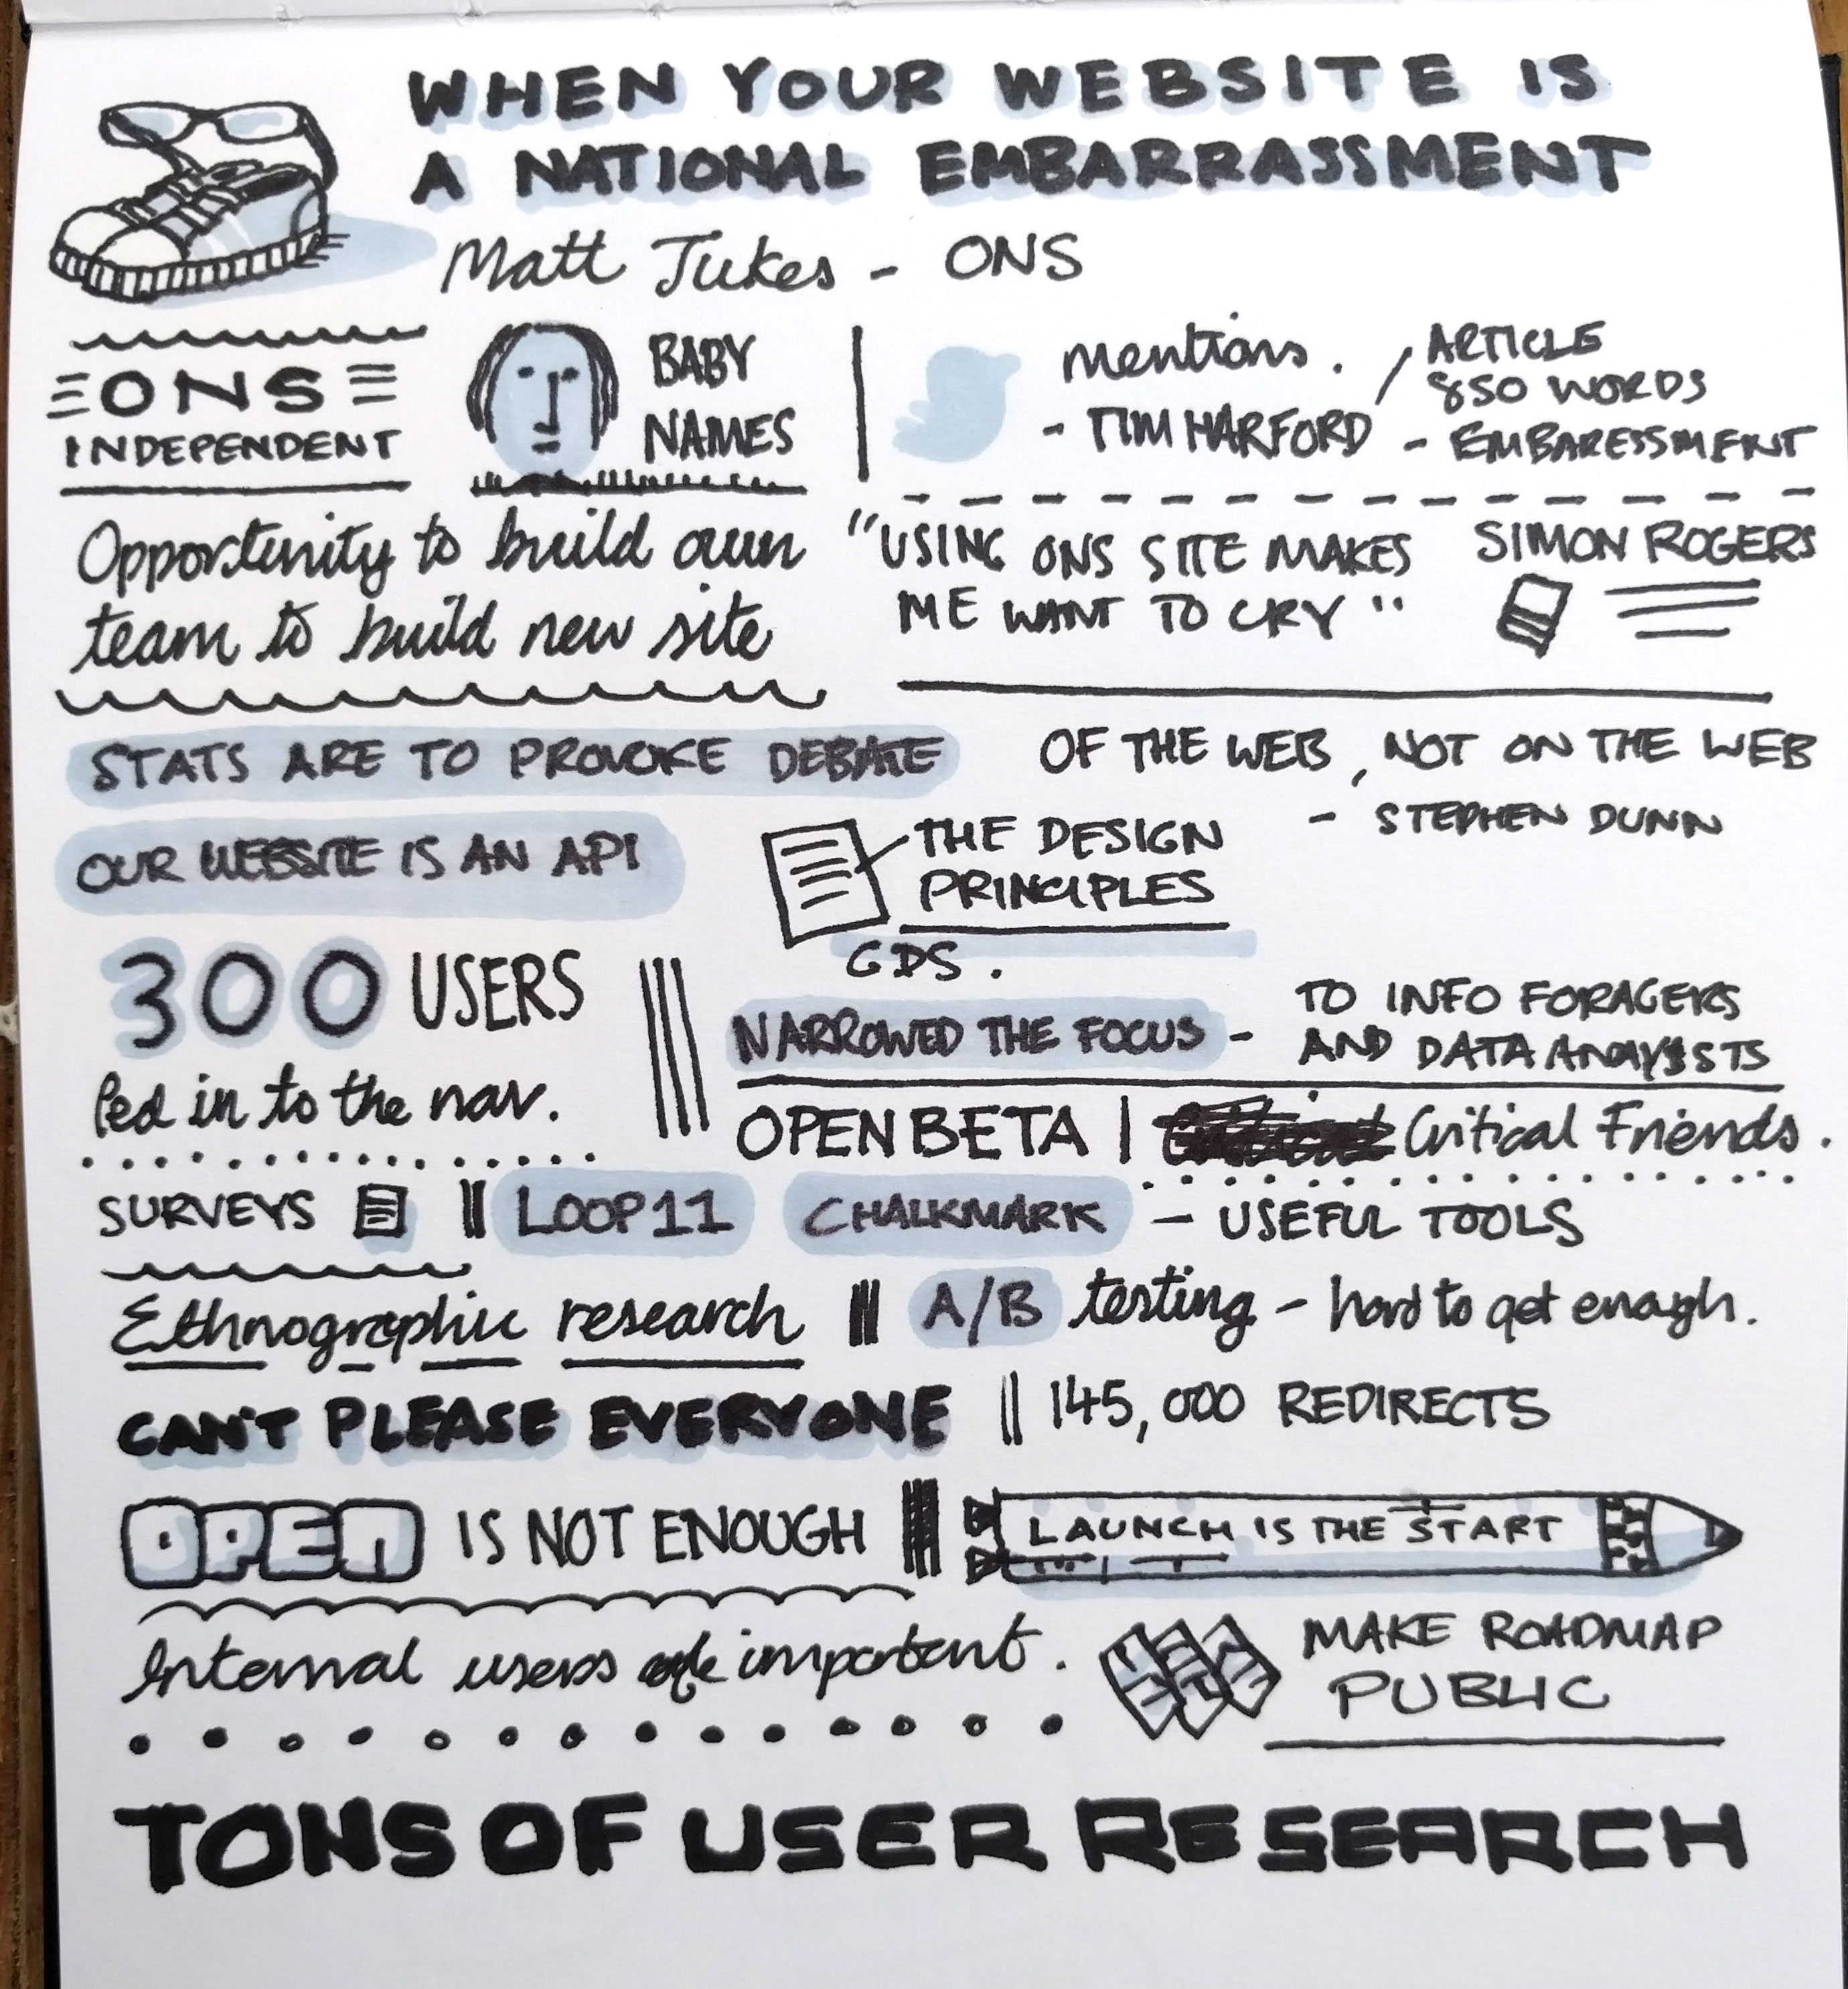 WHEN YOUR WEBSITE IS
A NATIONAL EMBARRASSMENT
Matt Jukes - ONS
ONS
INDEPENDENT
BABY
NAMES
mentions.
- TIM HARFORD
/ ARTICLE
850 WORDS
- EMBARESSMENT
Opportunity to build own
team to build new site
"USING ONS SITE MAKES
ME WANT TO CRY"
SIMON ROGERS
STATS ARE TO PROVOKE DEBATE
OF THE WEB, NOT ON THE WEB
- STEPHEN DUNN
OUR WEBSITE IS AN API
THE DESIGN
PRINCIPLES
GDS.
300 USERS
fed in to the nav.
NARROWED THE FOCUS -
TO INFO FORAGERS
AND DATA ANALYSTS
OPEN BETA | Critical Friends.
SURVEYS
LOOP11 CHALKMARK - USEFUL TOOLS
Ethnographic research
A/B testing - hard to get enough.
CAN'T PLEASE EVERYONE
145,000 REDIRECTS
OPEN IS NOT ENOUGH
LAUNCH IS THE START
Internal users are important.
MAKE ROADMAP
PUBLIC
TONS OF USER RESEARCH